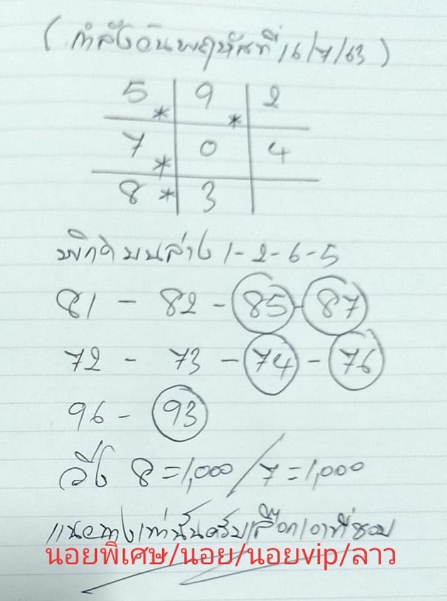 (กำลังวันพฤหัสที่ 16/7/63)
5 * 9 * 2
7 * 0 4
8 * 3
พิกัดบนล่าง 1-2-6-5
81 - 82 - 85 - 87
72 - 73 - 74 - 76
96 - 93
วิ่ง 8=1,000/7=1,000
แนะทางเท่านั้นครับเลือกเอาที่ชอบ
นอยพิเศษ/นอย/นอยvip/ลาว